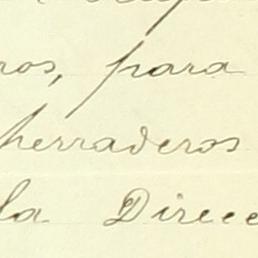 ros, para
herraderos
la Direcc